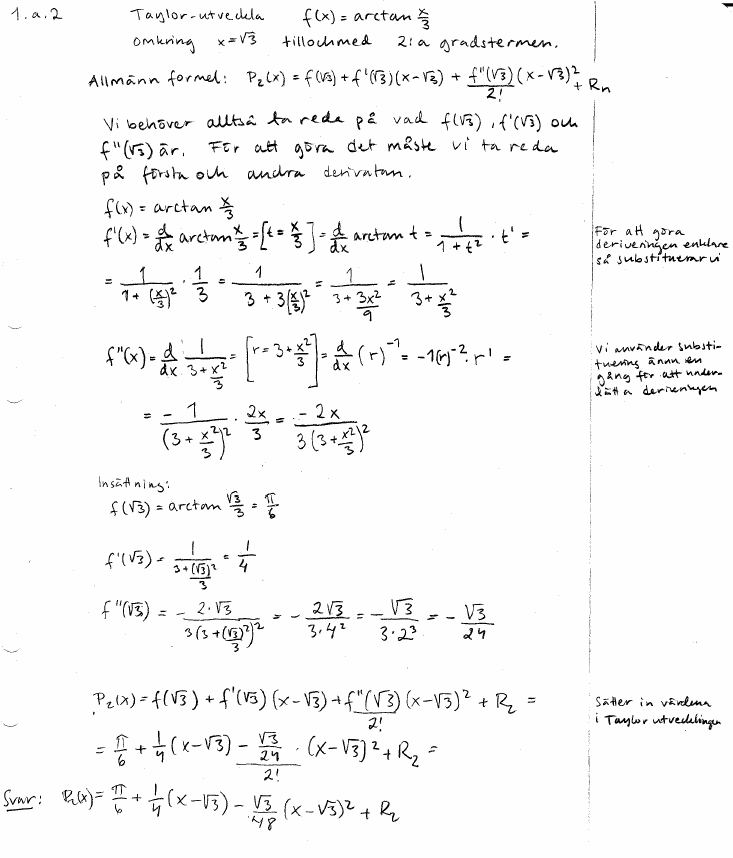 1.a.2 Taylor-utveckla f(x) = arctan x/3
omkring x=√3 tillochmed 2:a gradstermen.
Allmänn formel: P₂(x) = f(√3) + f'(√3)(x-√3) + f''(√3)(x-√3)²/2! + Rn
Vi behöver alltså ta reda på vad f(√3), f'(√3) och
f''(√3) är. För att göra det måste vi ta reda
på första och andra derivatan.
f(x) = arctan x/3
f'(x) = d/dx arctan x/3 = [t = x/3] = d/dx arctan t = 1/(1+t²) · t' =
För att göra
deriveringen enklare
så substituerar vi
= 1/(1+(x/3)²) · 1/3 = 1/(3+3(x/3)²) = 1/(3+3x²/9) = 1/(3+x²/3)
f''(x) = d/dx 1/(3+x²/3) = [r = 3+x²/3] = d/dx (r)⁻¹ = -1(r)⁻² · r' =
Vi använder substi-
tuering ännu en
gång för att under-
lätta
= -1/(3+x²/3)² · 2x/3 = -2x/(3(3+x²/3)²)
Insättning:
f(√3) = arctan √3/3 = π/6
f'(√3) = 1/(3+(√3)²/3) = 1/4
f''(√3) = -2·√3/(3(3+(√3)²/3)²) = -2√3/(3·4²) = -√3/(3·2³) = -√3/24
P₂(x) = f(√3) + f'(√3)(x-√3) + f''(√3)(x-√3)²/2! + R₂ =
Sätter in värdena
i Taylor utvecklingen
= π/6 + 1/4(x-√3) - (√3/24)/2! · (x-√3)² + R₂ =
Svar: P₂(x) = π/6 + 1/4(x-√3) - √3/48 (x-√3)² + R₂